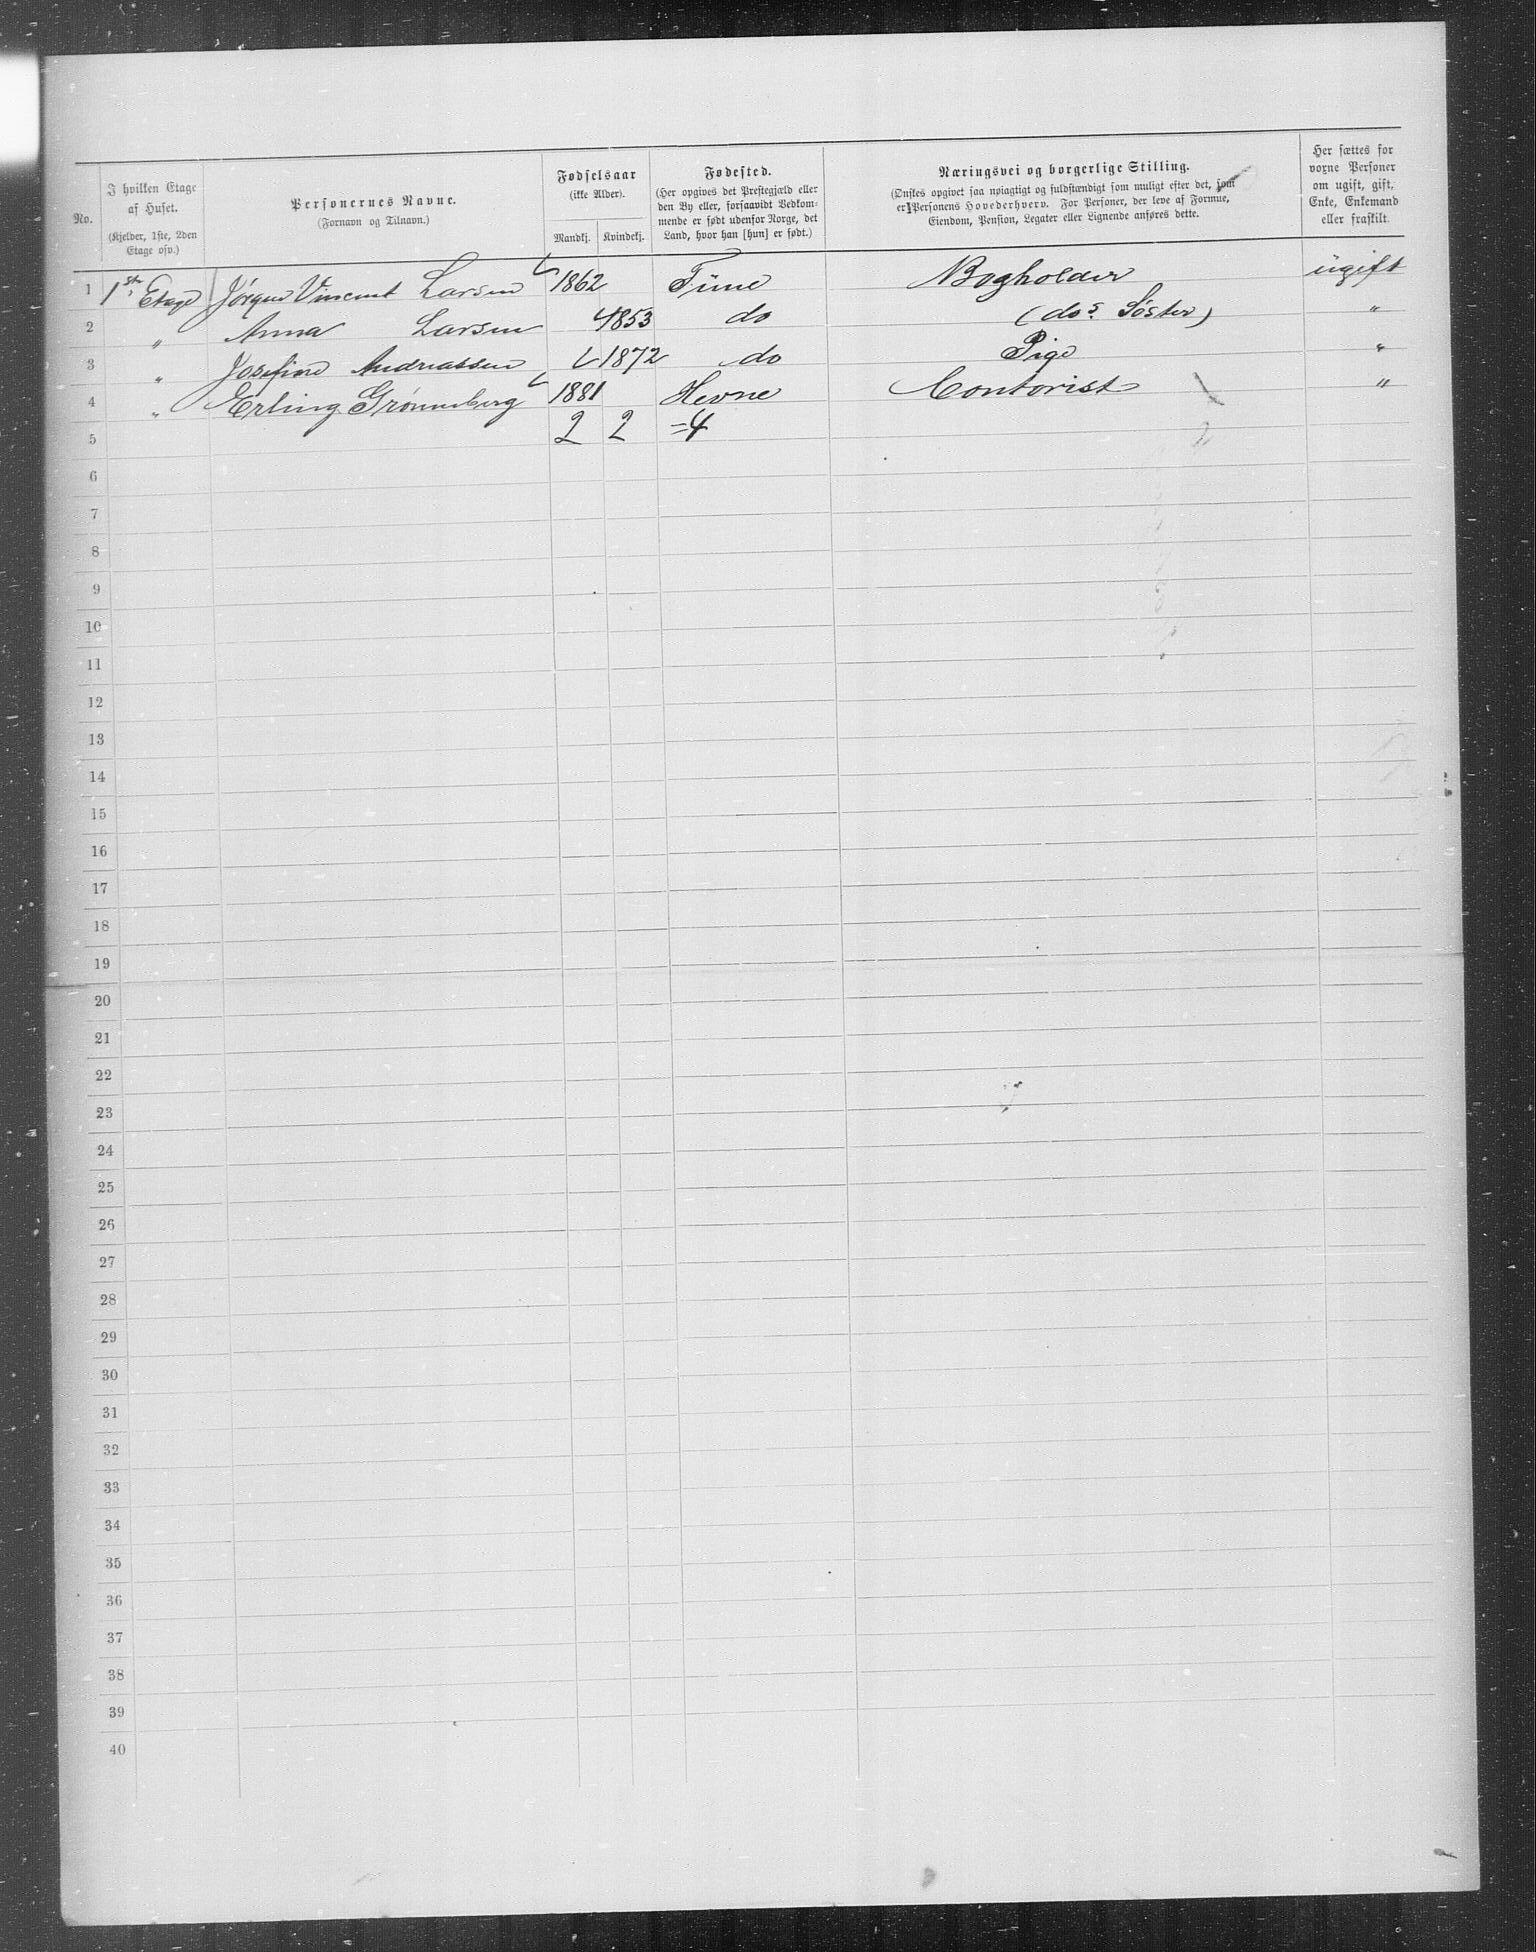 No.
I hvilken Etage af Huset.
(Kjelder, 1ste, 2den Etage osv.)
Personernes Navne.
(Fornavn og Tilnavn.)
Fødselsaar
(ikke Alder).
Mandkj. Kvindekj.
Fødested.
(Her opgives det Prestegjæld eller
den By eller, forsaavidt Vedkom-
mende er født udenfor Norge, det
Land, hvor han [hun] er født.)
Næringsvei og borgerlige Stilling.
(Ønskes opgivet saa nøiagtigt og fuldstændigt som muligt efter det, som
er Personens Hovederhverv. For Personer, der leve af Formue,
Eiendom, Pension, Legater eller Lignende anføres dette.
Her sættes for
voxne Personer
om ugift, gift,
Enke, Enkemand
eller fraskilt.
1 1ste Etage Jörgen Vincent Larsen 1862 Bogholder ugift
2 " Anna Larsen 1853 do (dos Søster) "
3 " Josefine Andreassen 1872 do Pige "
4 " Erling Grønneberg 1881 Hevne Contorist "
5 2 2 =4
6
7
8
9
10
11
12
13
14
15
16
17
18
19
20
21
22
23
24
25
26
27
28
29
30
31
32
33
34
35
36
37
38
39
40